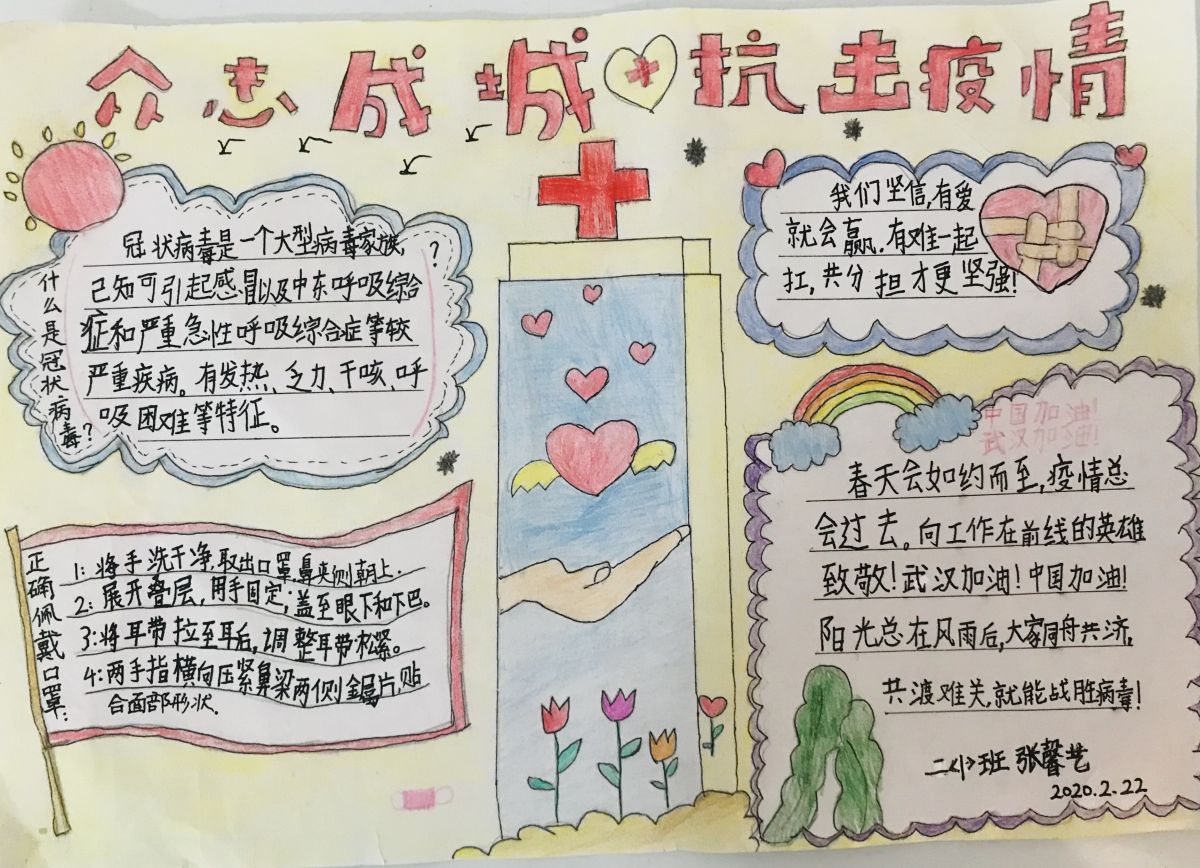 众志成城 抗击疫情
什么是冠状病毒?
冠状病毒是一个大型病毒家族,
己知可引起感冒以及中东呼吸综合
症和严重急性呼吸综合症等较
严重疾病。有发热、乏力、干咳、呼
吸困难等特征。
?
我们坚信,有爱
就会赢.有难一起
扛,共分担才更坚强!
正确佩戴口罩:
1:将手洗干净,取出口罩,鼻夹侧朝上.
2:展开叠层,用手固定;盖至眼下和下巴。
3:将耳带拉至耳后,调整耳带松紧。
4:两手指横向压紧鼻梁两侧金属片,贴
合面部形状.
中国加油!
武汉加油!
春天会如约而至,疫情总
会过去。向工作在前线的英雄
致敬!武汉加油!中国加油!
阳光总在风雨后,大家同舟共济,
共渡难关,就能战胜病毒!
二<1>班 张馨艺
2020.2.22